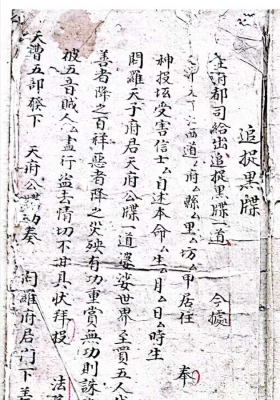 追捉黑牒
主府都司給出追捉黑牒一道 今據
西道厶府厶縣厶里厶坊厶甲居住 奉
神投坛受害信士厶自述本命厶生厶月厶日厶時生
閻羅天子府居天府公牒一道 婆娑世界全買五人
善者降之百祥惡者降之災殃有功重賞無功則誅
被五音賊人厶盡行盜去情切不甘具狀拜投 法
天曹五部發下 天府公 奏 閻羅府居門下善